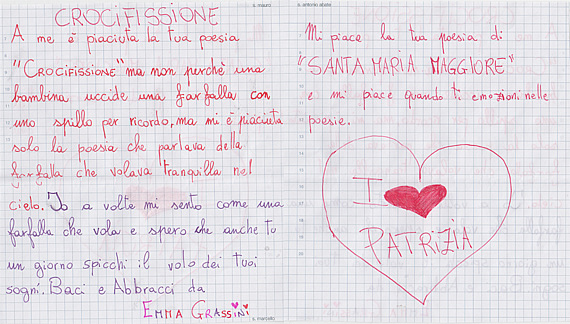 s. mauro
CROCIFISSIONE
A me è piaciuta la tua poesia
"CROCIFISSIONE" ma non perchè una
bambina uccide una farfalla con
uno spillo per ricordo, ma mi è piaciuta
solo la poesia che parlava della
farfalla che volava tranquilla nel
cielo. Io a volte mi sento come una
farfalla che vola e spero che anche tu
un giorno spicchi il volo dei tuoi
sogni. Baci e Abbracci da
EMMA GRASSINI
s. marcello
s. antonio abate
Mi piace la tua poesia di
"SANTA MARIA MAGGIORE"
e mi piace quando ti emozioni nelle
poesie.
I
PATRIZIA